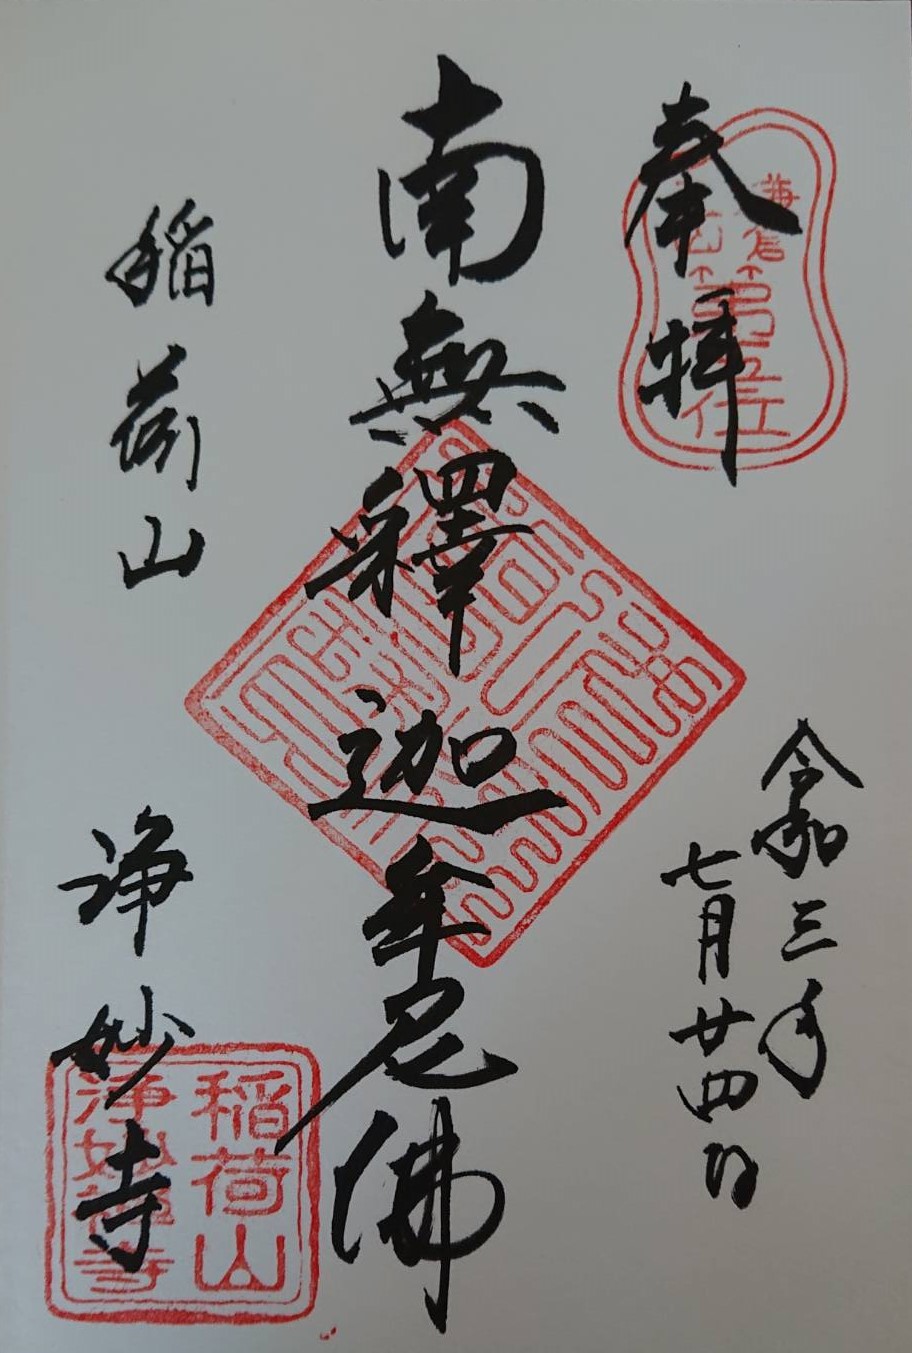 奉拝
令和三年
七月廿四日
南無釋迦牟尼佛
稲荷山
浄妙寺
稲荷山
浄妙禅寺